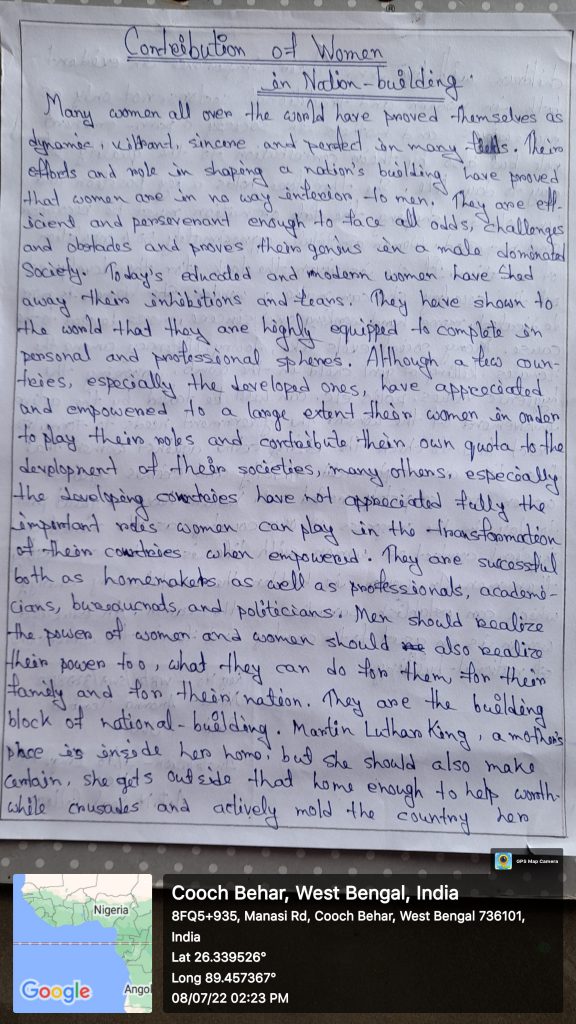 Contribution of Women
in Nation-building.
Many women all over the world have proved themselves as
dynamic, vibrant, sincere and perfect in many fields. Their
efforts and role in shaping a nation's building, have proved
that women are in no way inferior to men. They are eff-
icient and perseverant enough to face all odds, challenges
and obstacles and proves their genius in a male dominated
Society. Today's educated and modern women have shed
away their inhibitions and fears. They have shown to
the world that they are highly equipped to complete in
personal and professional spheres. Although a few coun-
tries, especially the developed ones, have appreciated
and empowered to a large extent their women in order
to play their roles and contribute their own quota to the
development of their societies, many others, especially
the developing countries have not appreciated fully the
important roles women can play in the transformation
of their countries when empowered. They are successful
both as homemakers as well as professionals, academi-
cians, bureaucrats, and politicians. Men should realize
the power of women and women should also realize
their power too, what they can do for them, for their
family and for their nation. They are the building
block of national-building. Martin Luthar King, a mother's
place is inside her home, but she should also make
certain, she gets outside that home enough to help worth-
while crusades and actively mold the country her
GPS Map Camera
Nigeria
Angol
Google
Cooch Behar, West Bengal, India
8FQ5+935, Manasi Rd, Cooch Behar, West Bengal 736101,
India
Lat 26.339526°
Long 89.457367°
08/07/22 02:23 PM